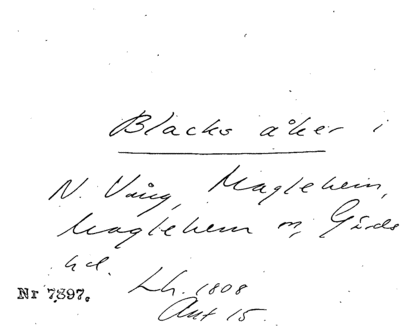 Blacks åker i
N. Vång, Maglehem,
Maglehem s, Gärds
hd.
Lh. 1808
Nr 7397.
Akt 15.